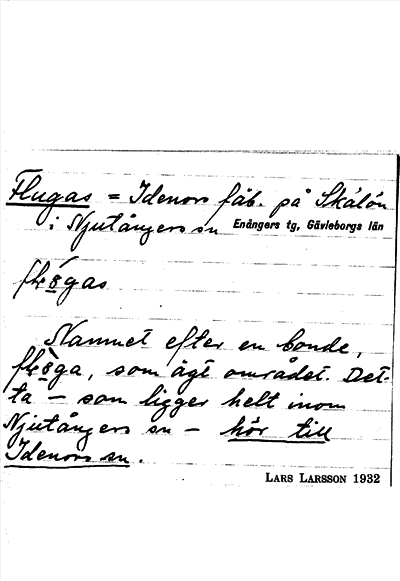 Flugas = Idenors fäb. på Skålön
i Njutångers sn Enångers tg, Gävleborgs län
gas
Namnet efter en bonde,
ga, som ägt området. Det-
ta – som ligger helt inom
Njutångers sn – hör till
Idenors sn.
LARS LARSSON 1932